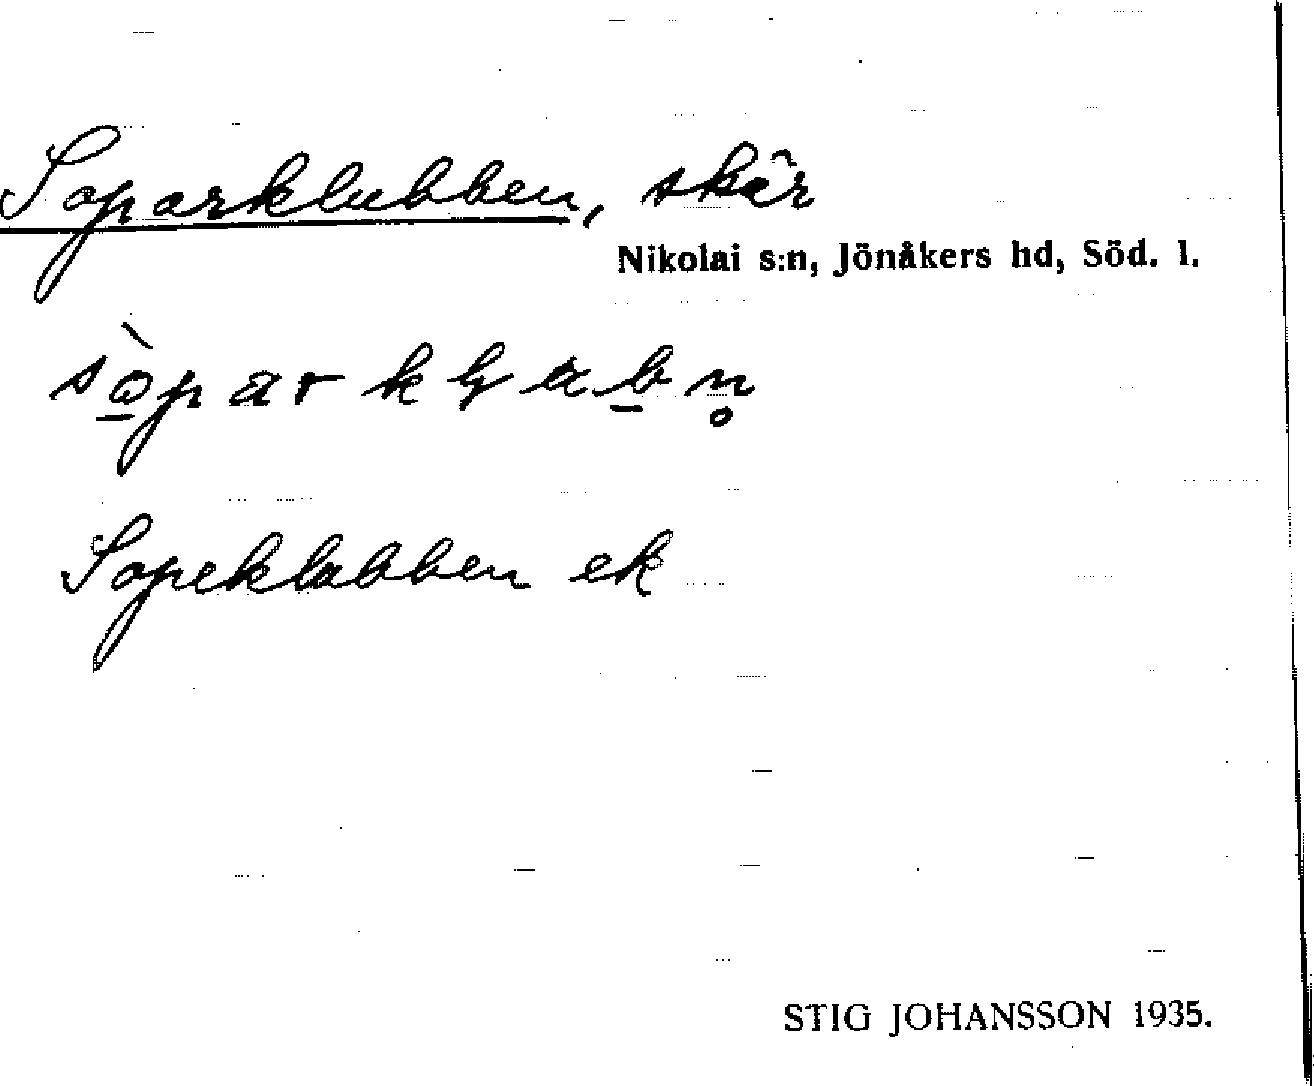 Soparklubben, skär
Nikolai s:n, Jönåkers hd, Söd. l.
Sopeklubben ek
STIG JOHANSSON 1935.